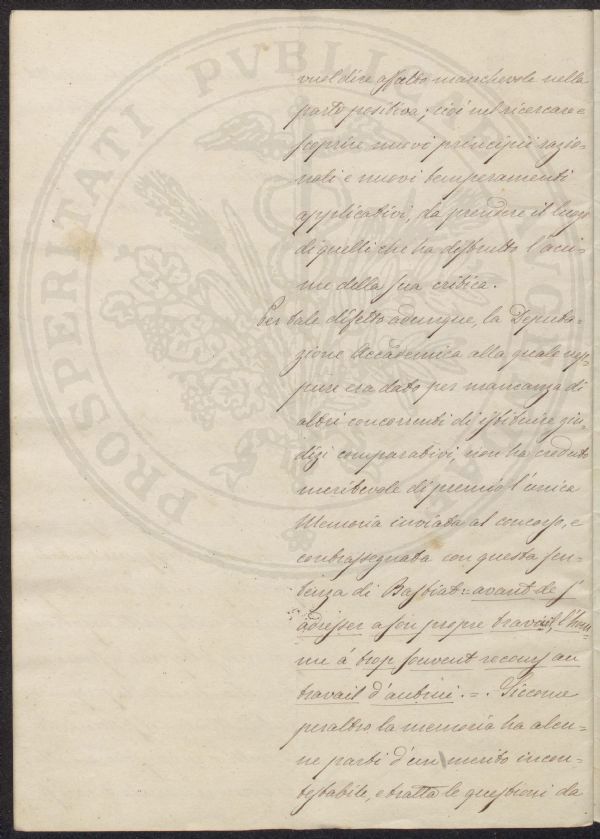 vuol dire affatto manchevole nella
parte positiva; cioè nel ricercare e
scoprire nuovi principii razio=
nali e nuovi temperamenti
applicativi, da prendere il luogo
di quelli che ha distrutto l'acu=
me della sua critica.
Per tale difetto adunque, la Deputa=
zione Accademica alla quale nep=
pure era dato per mancanza di
altri concorrenti di istituire giu=
dizi comparativi, non ha creduto
meritevole di premio l'unica
Memoria inviata al concorso, e
contrassegnata con questa sen=
tenza di Bastiat: avant de s'
adresser a son propre travail, l'hom
me à trop souvent recours au
travail d'autrui. =. Siccome
peraltro la memoria ha alcu=
ne parti d'un merito incon=
testabile, e tratta le questioni da
PROSPERITATI PVBLICAE